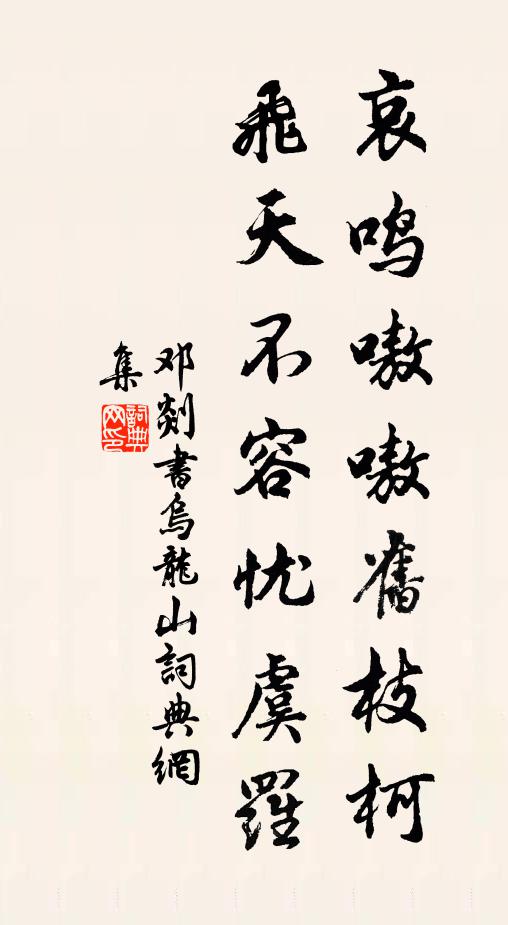 哀鸣嗷嗷舊枝柯
飛天不容忧虞羅
邓剡書烏龍山詞典網
集
詞典网印